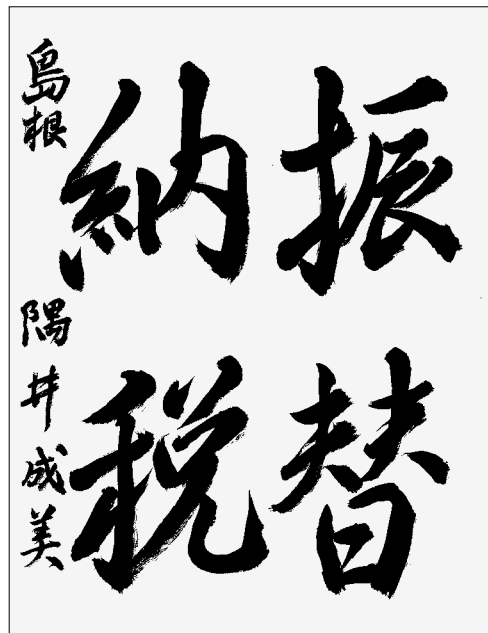 振替
納税
島根 隅井成美